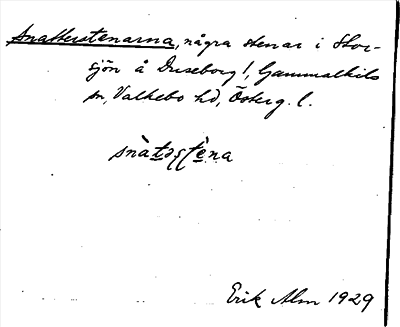 Snatterstenarna, några stenar i Stor-
sjön å Duseborg!, Gammalkils
sn, Valkebo hd, Österg. l.
snàtəstèna
Erik Alm 1929